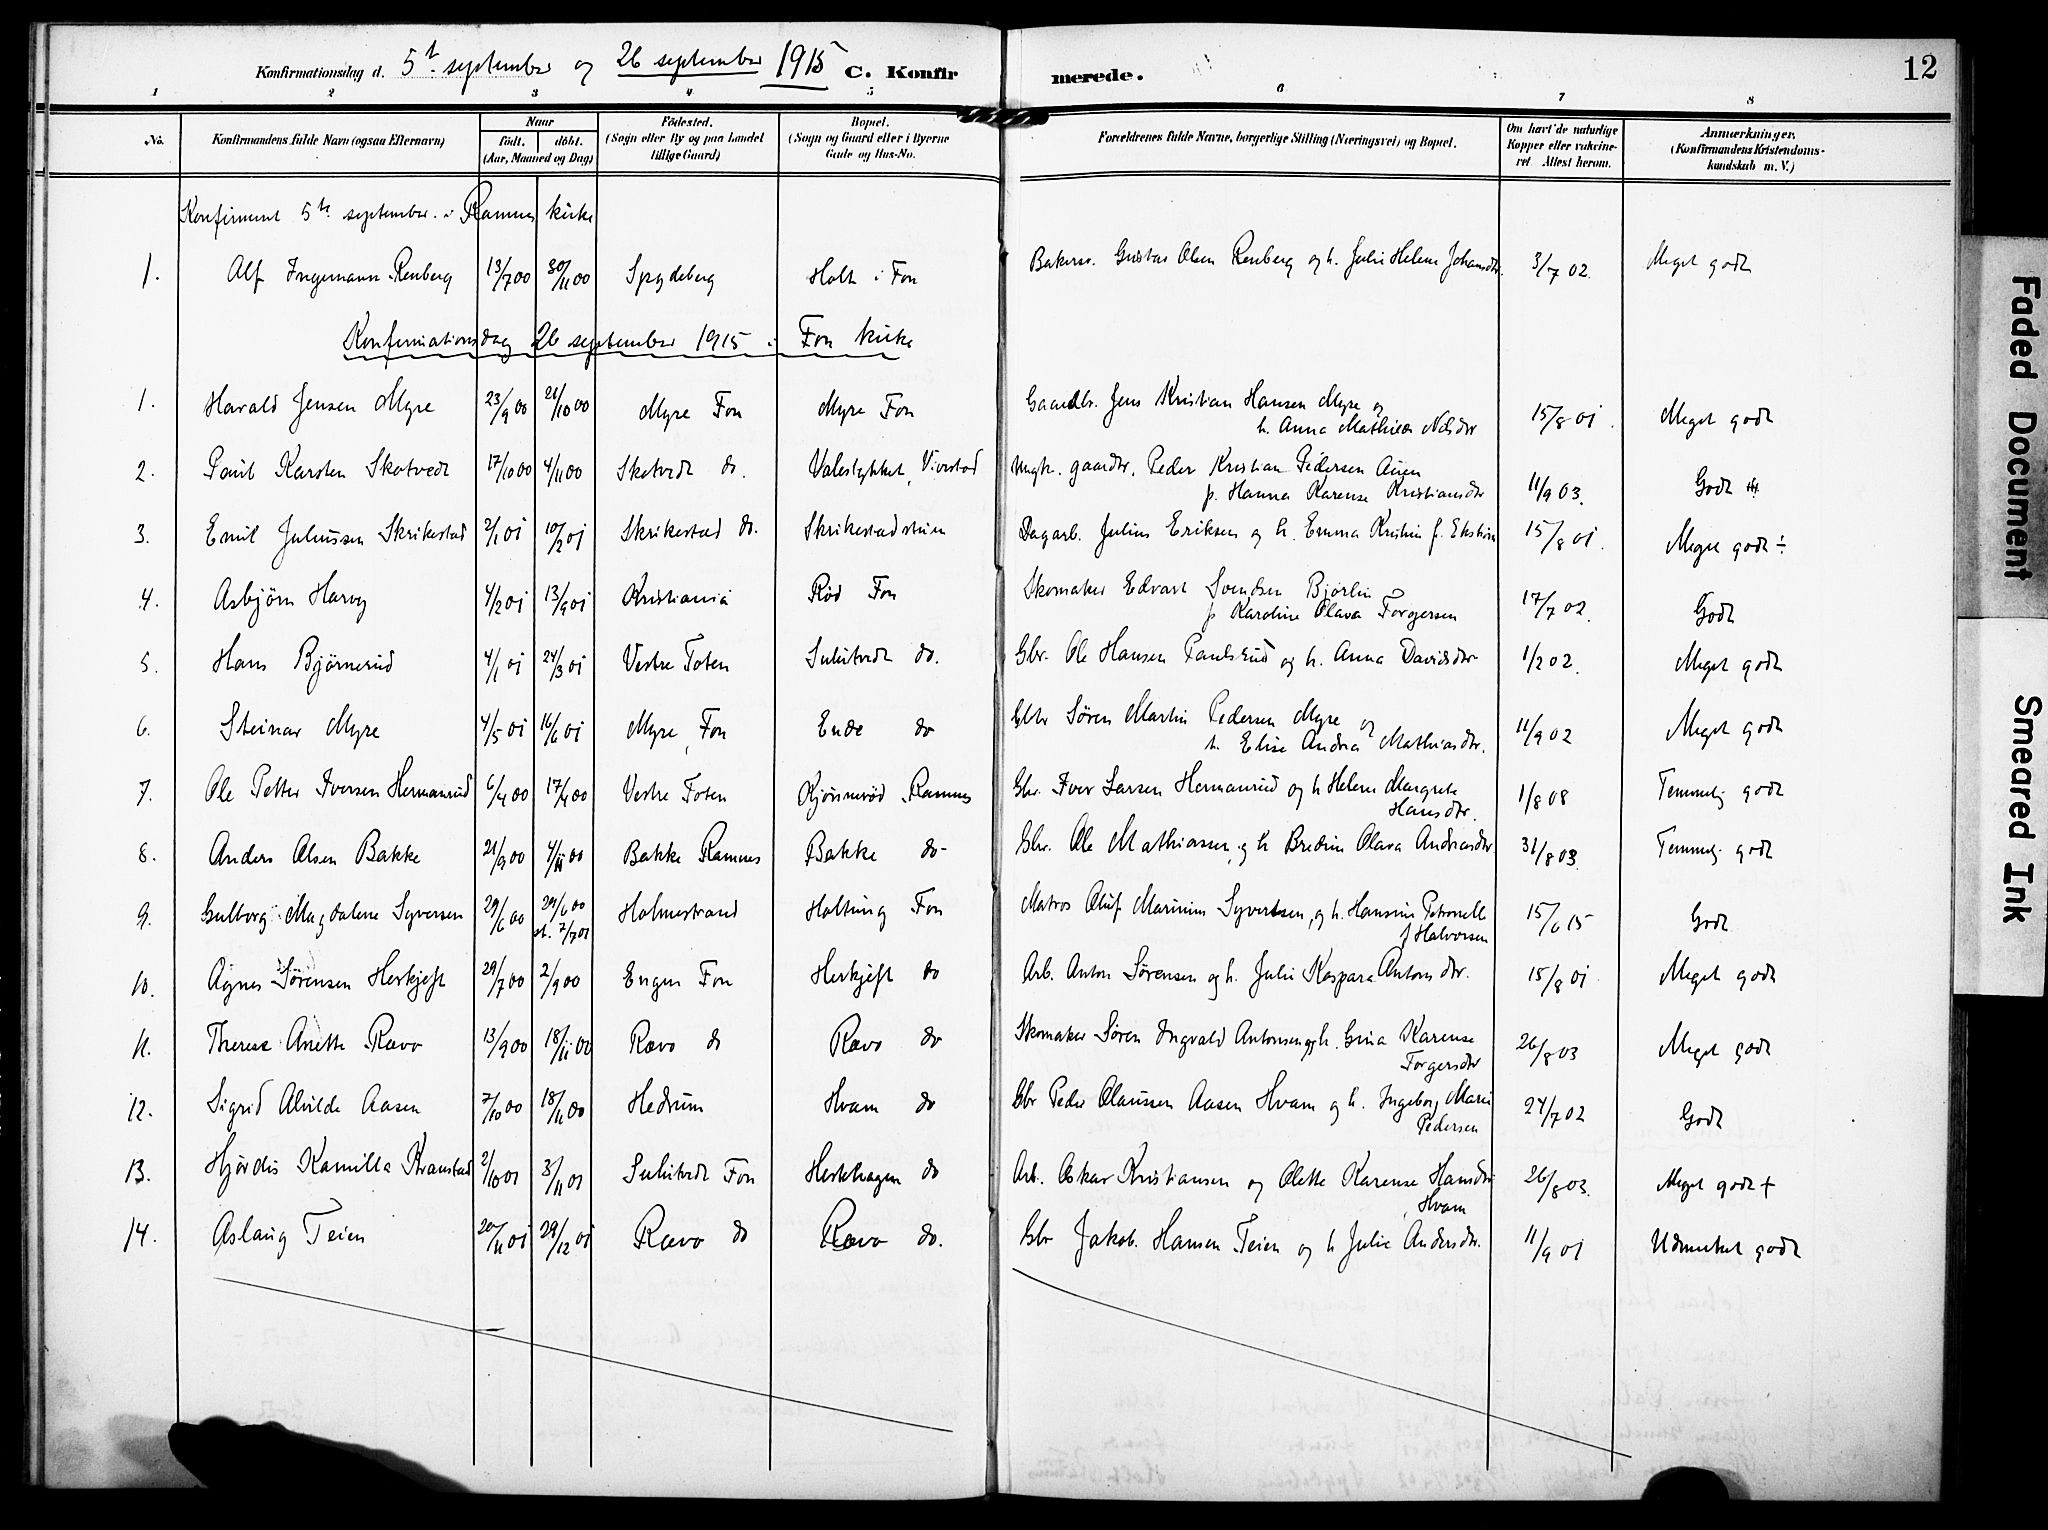 Konfirmationsdag d. 5te september og 26 september 1915 C. Konfirmerede.
12
1 2 3 4 5 6 7 8
No. Konfirmandens fulde Navn (ogsaa Efternavn) Naar født. døbt. (Aar, Maaned og Dag) Fødested. (Sogn eller By og paa Landet tillige Gaard) Bopæl. (Sogn og Gaard eller i Byerne Gade og Hus-No. Forældrenes fulde Navne, borgerlige Stilling (Næringsvei) og Bopæl. Om havt de naturlige Kopper eller vakcineret Attest herom. Anmærkninger. (Konfirmandens Kristendomskundskab m. V.)
Konfirmeret 5te september i Ramnes kirke
1. Alf Ingemann Renberg 13/7 00 30/11 00 Spydeberg Holt i Fon Bakersv. Gustav Olsen Renberg og h. Julie Helene Johansdtr. 3/7 02. Meget godt
Konfirmationsdag 26 september 1915 i Fon kirke
1. Harald Jensen Myre 23/9 00 21/10 00 Myre Fon Myre Fon Gaardbr. Jens Kristian Hansen Myre og
h. Anna Mathilde Nilsdtr 15/8 01. Meget godt
2. Paul Karsten Skotvedt 17/10 00 4/11 00 Skotvedt do. Valestykket, Vivestad Ungk. gaardbr. Peder Kristian Pedersen
p. Hanna Karense Kristiansdtr 11/9 03. Godt
3. Emil Juliussen Skrikestad 2/1 01 10/2 01 Skrikestad do. Skrikestadstuen Dagarb. Julius Eriksen og h. Emma Kristin f. Ekström 15/8 01. Meget godt ÷
4. Asbjørn Harvy 4/2 01 13/9 01 Kristiania Rød Fon Skomaker Edvart Svendsen Bjørlin
p Karoline Olava Torgersen 17/7 02. Godt
5. Hans Bjørnerud 4/1 01 24/3 01 Vestre Toten Sulutvedt do. Gbr. Ole Hansen Paulsrud og h. Anna Davidsdtr 1/2 02. Meget godt
6. Steinar Myre 4/5 01 16/6 01 Myre, Fon Ende do Gbr Søren Martin Pedersen Myre og
h. Elise Andrea Mathiasdtr. 11/9 02 Meget godt
7. Ole Petter Iversen Hermanrud 6/4 00 17/4 00 Vestre Toten Kjønnerød Ramnes Gbr. Iver Larsen Hermanrud og h Helene Margrete
Hansdtr. 1/8 08 Temmelig godt
8. Anders Olsen Bakke 21/9 00 4/11 00 Bakke Ramnes Bakke do- Gbr. Ole Mathiassen og h Bredine Olava Andreasdtr 31/8 03. Temmelig godt
9. Gulborg Magdalene Syversen 29/6 00 29/6 00 Holmestrand Holtung Fon Matros Oluf Marinius Syvertsen, og h. Hansine Petronelle
st. 7/7 01 f Halvorsen 15/6 15 Godt
10. Agnes Sørensen Herkjeft 29/7 00 2/9 00 Engen Fon Herkjeft do Arb. Anton Sørensen og h. Julie Kaspara Antonsdtr. 15/8 01. Meget godt
11. Therese Anette Ravo 13/9 00 18/11 00 Ravo do Ravo do Skomaker Søren Ingvald Antonsen og h. Gina Karense
Torgersdtr 26/8 03 Meget godt
12. Sigrid Alvilde Aasen 7/10 00 18/11 00 Hedrum Hvam do Gbr Peder Olaussen Aasen Hvam og h. Ingeborg Marie
Pedersen 24/7 02 Godt
13. Hjørdis Kamilla Kranstad 2/10 01 3/11 01 Sulutvedt Fon Herkhagen do Arb. Oskar Kristiansen og Olette Karense Hansdtr
Hvam 26/8 03. Meget godt +
14. Aslaug Teien 20/11 01 29/12 01 Ravo do Ravo do. Gbr Jakob Hansen Teien og h Julie Andersdtr. 11/9 01 Udmerket godt
Faded Document
Smeared Ink